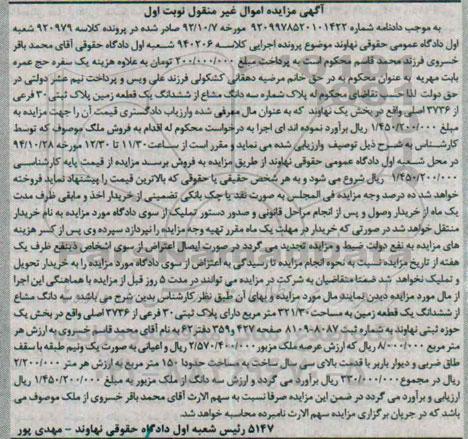 آگهی مزایده اموال غیر منقول نوبت اول
به موجب دادنامه شماره ۹۲۰۹۹۷۸۵۲۰۱۰۱۴۲۲ مورخه ۹۲/۱۰/۷ صادر شده در پرونده کلاسه ۹۲۰۹۷۹ شعبه
اول دادگاه عمومی حقوقی نهاوند موضوع پرونده اجرایی کلاسه ۹۴۰۲۰۶ شعبه اول دادگاه حقوقی آقای محمد باقر
خسروی فرزند محمد قاسم محکوم است به پرداخت مبلغ ۲۰۰/۰۰۰/۰۰۰ تومان به علاوه هزینه یک سفره حج عمره
بابت مهریه به عنوان محکوم به در حق خانم مرضیه دهقانی کشکولی فرزند علی ویس و پرداخت نیم عشر دولتی در
حق دولت لذا حسب تقاضای محکوم له پلاک شماره سه دانگ مشاع از ششدانگ یک قطعه زمین پلاک ثبتی ۳۰ فرعی
از ۳۷۳۶ اصلی واقع در بخش یک نهاوند که به عنوان مال معرفی شده وارزیاب دادگستری قیمت آن را جهت مزایده به
مبلغ ۱/۴۵۰/۲۰۰/۰۰۰ ریال برآورد نموده اند ای اجرا به درخواست محکوم له اقدام به فروش ملک موصوف که توسط
کارشناس به شرح ذیل توصیف وارزیابی شده می نماید و مقرر است از ساعت ۱۱/۳۰ تا ۱۲/۳۰ مورخه ۹۴/۱۰/۲۸
در محل شعبه اول دادگاه عمومی حقوقی نهاوند از طریق مزایده به فروش برسد مزایده از قیمت پایه کارشناسی
۱/۴۵۰/۲۰۰/۰۰۰ ریال شروع می شود و به هر شخص حقیقی یا حقوقی که بالاترین قیمت را پیشنهاد نماید فروخته
خواهد شد ده درصد وجه مزایده فی المجلس به صورت نقد یا چک بانکی تضمینی از خریدار اخذ و مابقی ظرف مدت
یک ماه از خریدار وصول و پس از انجام مراحل قانونی و صدور دستور تملیک از سوی دادگاه مورد مزایده به نام خریدار
منتقل خواهد شد در صورتی که خریدار در مهلت یک ماه مقرر تهیه وجه مزایده را نپردازد سپرده وی پس از کسر هزینه
های مزایده به نفع دولت ضبط و مزایده تجدید می گردد در صورت ایصال اعتراض از سوی اشخاص ذینفع ظرف یک
هفته از تاریخ مزایده نسبت به نحوه انجام مزایده تا رسیدگی به اعتراض از سوی دادگاه مورد مزایده را به خریدار تحویل
و تملیک نخواهد شد ضمنا متقاضیان به شرکت در مزایده می توانند در مدت ۵ روز قبل از مزایده با هماهنگی این اجرا
از مال مورد مزایده دیدن نمایند مال مورد مزایده و بهای آن طبق نظر کارشناس بدین شرح می باشد سه دانگ مشاع
از ششدانگ یک قطعه زمین به مساحت ۳۲۱/۳۰ متر مربع دارای پلاک ثبتی ۳۰ فرعی از ۳۷۳۶ اصلی واقع در بخش یک
حوزه ثبتی نهاوند به شماره ثبت ۸۰۸۷-۸۱۰۹ صفحه ۴۲۷ و ۳۵۹ دفتر ۶۲ به نام آقای محمد قاسم خسروی به ارزش هر
متر مربع ۸/۰۰۰/۰۰۰ ریال که ارزش عرصه ملک مزبور ۲/۵۷۰/۴۰۰/۰۰۰ ریال و اعیانی به صورت یک ونیم طبقه با سقف
طاق ضربی و دیوار باربر با قدمت بالای سی سال ساخت به مساحت حدودا ۱۵۰ متر مربع به ارزش هر متر ۲/۲۰۰/۰۰۰
ریال در مجموع ۳۳۰/۰۰۰/۰۰۰ ریال برآورد می گردد و ارزش سه دانگ از ملک مزبور به مبلغ ۱/۴۵۰/۲۰۰/۰۰۰ ریال
ارزیابی و برآورد می گردد در ضمن این مزایده صرفا نسبت به سهم الارث آقای محمد باقر خسروی از ملک موصوف می
باشد که در جریان برگزاری مزایده سهم الارث نامبرده محاسبه خواهد شد.
۵۱۴۷ رئیس شعبه اول دادگاه حقوقی نهاوند - مهدی پور